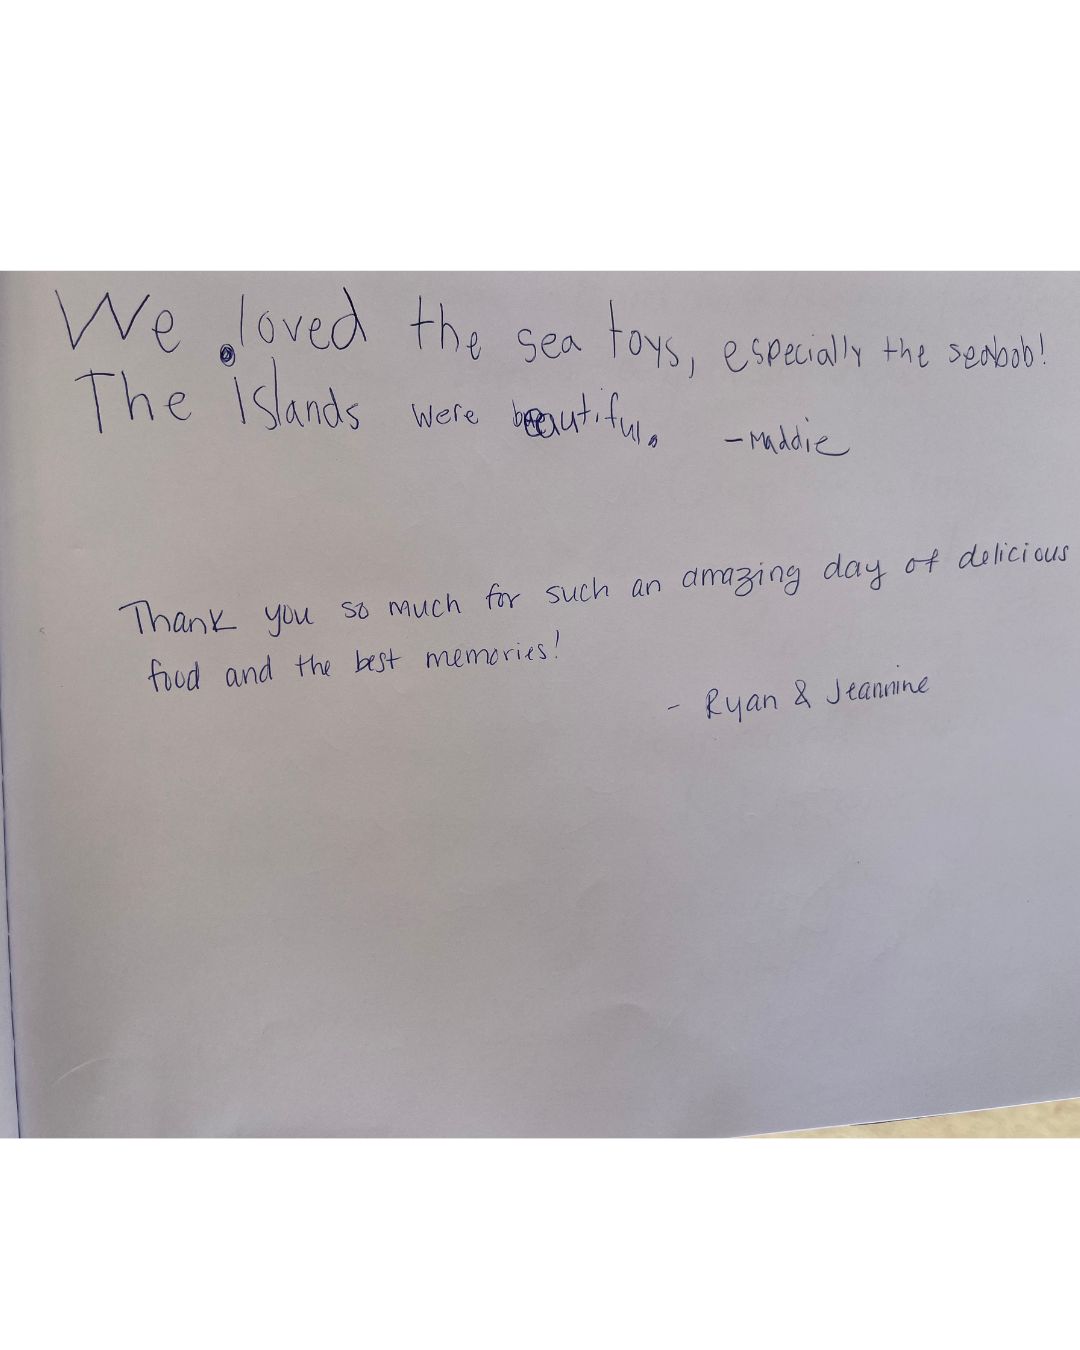 We loved the sea toys, especially the seabob!
The Islands were beautiful.
-Maddie
Thank you so much for such an amazing day of delicious
food and the best memories!
- Ryan & Jeannine